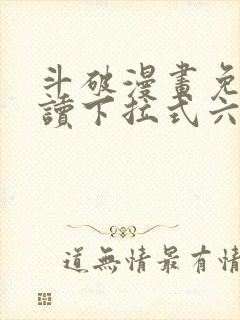 斗破漫畫免
讀下拉式六
道無情最有情